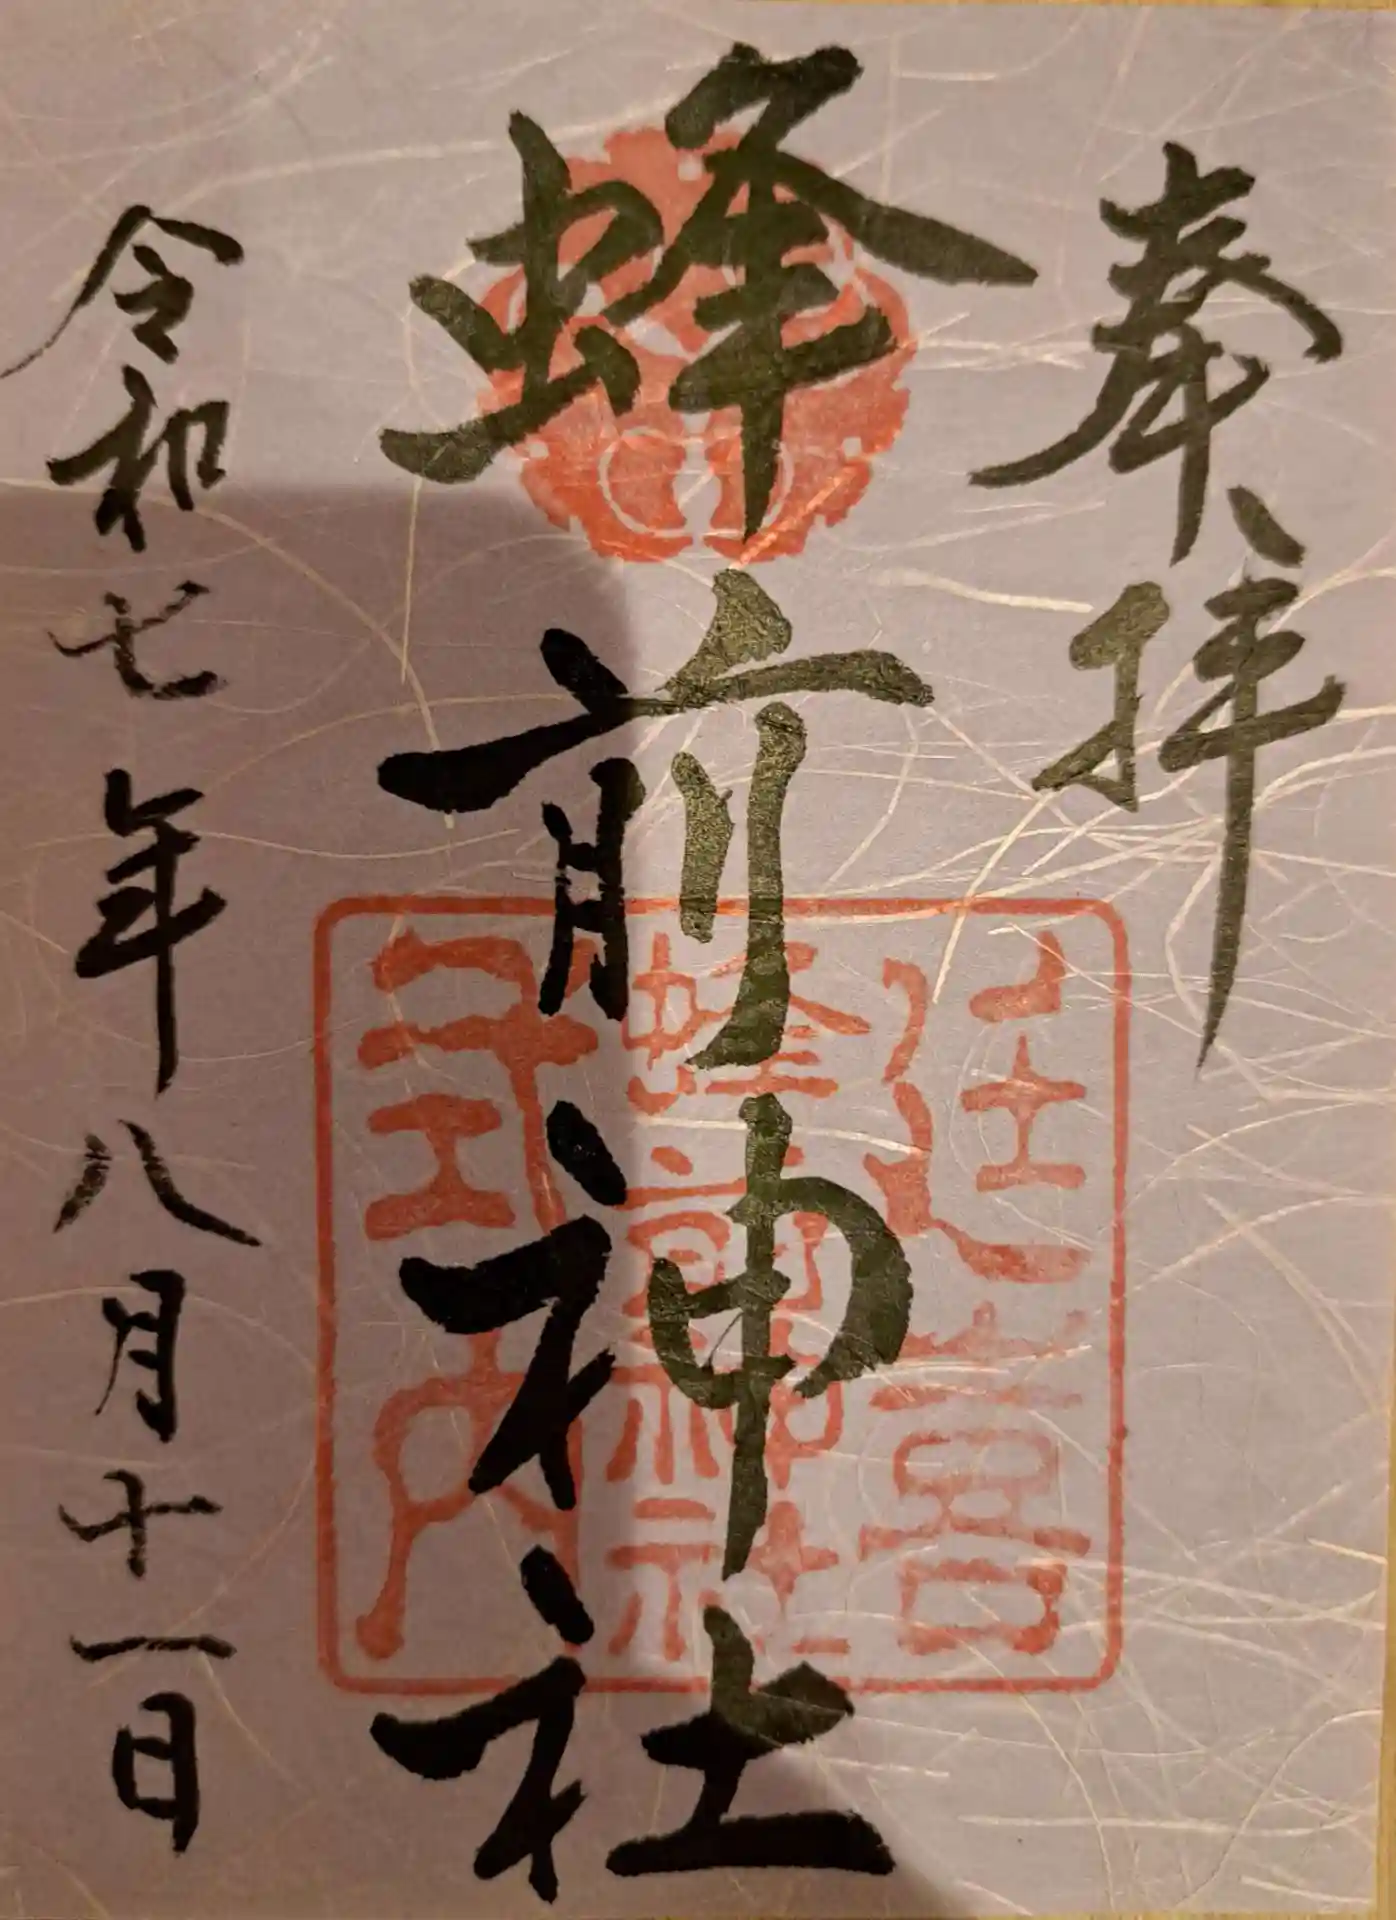 奉拝
蜂前神社
令和七年八月十一日
延喜
蜂前神社
式内